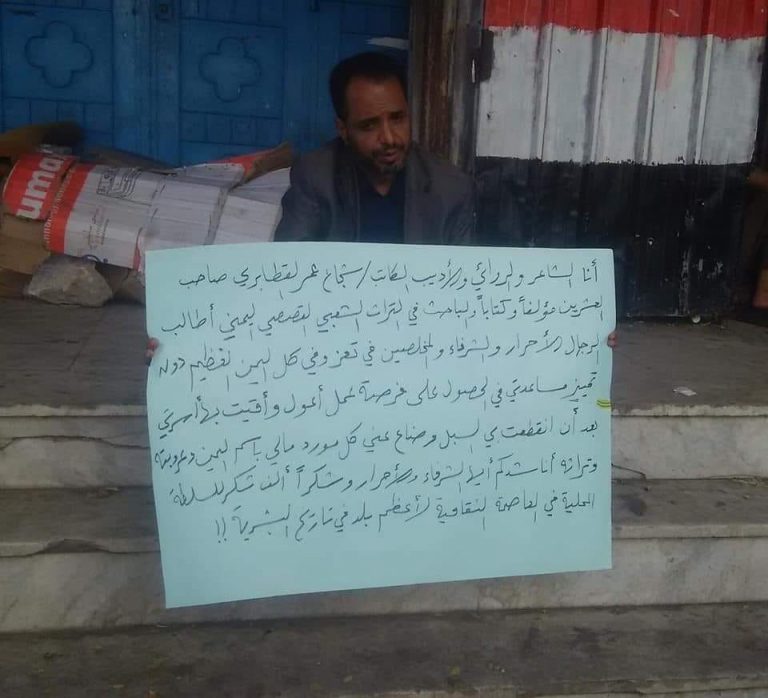 uma
أنا الشاعر والروائي والأديب الكاتب/ شجاع عمر القطابري صاحب
العشرين مؤلفاً وكتاباً والباحث في التراث الشعبي القصصي اليمني أطالب
الرجال الأحرار والشرفاء والمخلصين في تعز وفي كل اليمن العظيم دونه
تمييز مساعدتي في الحصول على فرصة عمل أعول وأقيت بها أسرتي
بعد أن انقطعت بي السبل وضاع عني كل مورد مالي باسم اليمن وعروبته
وتراثه أناشدكم أيها الشرفاء والأحرار وشكراً ألف شكر للسلطة
المحلية في العاصمة الثقافية لأعظم بلد في تاريخ البشرية !!